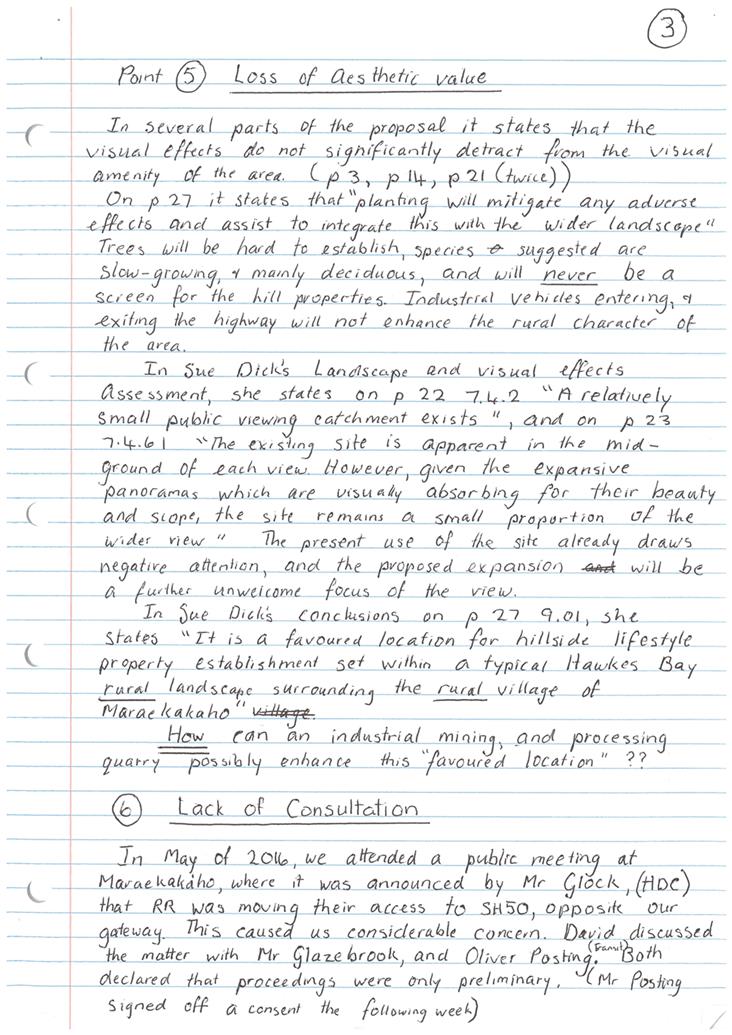 3
Point 5 Loss of Aesthetic value
In several parts of the proposal it states that the
visual effects do not significantly detract from the visual
amenity of the area. (p 3, p 14, p 21 (twice))
On p 27 it states that "planting will mitigate any adverse
effects and assist to integrate this with the wider landscape"
Trees will be hard to establish, species suggested are
slow-growing, & mainly deciduous, and will never be a
screen for the hill properties. Industrial vehicles entering, &
exiting the highway will not enhance the rural character of
the area.
In Sue Dick's Landscape and visual effects
Assessment, she states on p 22 7.4.2 "A relatively
small public viewing catchment exists", and on p 23
7.4.61 "The existing site is apparent in the mid-
ground of each view. However, given the expansive
panoramas which are visually absorbing for their beauty
and scope, the site remains a small proportion of the
wider view" The present use of the site already draws
negative attention, and the proposed expansion and will be
a further unwelcome focus of the view.
In Sue Dick's conclusions on p 27 9.01, she
states "It is a favoured location for hillside lifestyle
property establishment set within a typical Hawkes Bay
rural landscape surrounding the rural village of
Maraekakaho" village.
How can an industrial mining, and processing
quarry possibly enhance this "favoured location" ??
6 Lack of Consultation
In May of 2016, we attended a public meeting at
Maraekakaho, where it was announced by Mr Glock, (HDC)
that RR was moving their access to SH50, opposite our
gateway. This caused us considerable concern. David discussed
the matter with Mr Glazebrook, and Oliver Posting. (Transit) Both
declared that proceedings were only preliminary. (Mr Posting
signed off a consent the following week)